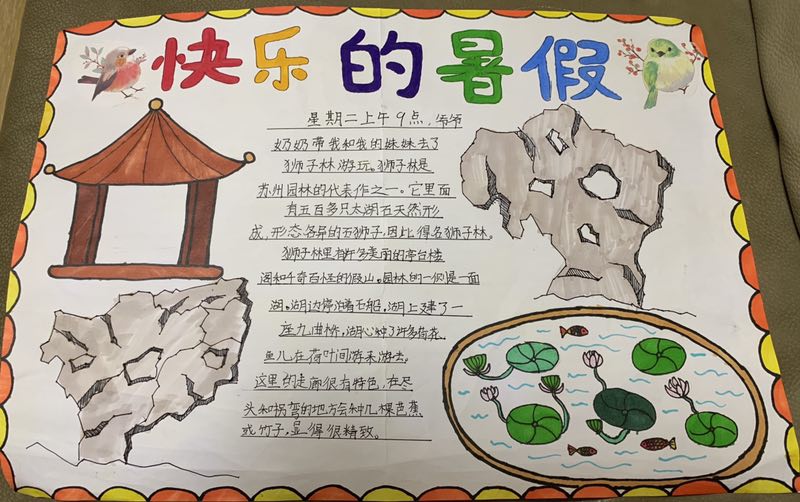 快乐的暑假
星期二上午9点，爷爷
奶奶带我和我的妹妹去了
狮子林游玩。狮子林是
苏州园林的代表作之一。它里面
有五百多只太湖石天然形
成，形态各异的石狮子，因此得名狮子林。
狮子林里有许多美丽的亭台楼
阁和千奇百怪的假山。园林的一侧是一面
湖。湖边停泊着石船，湖上建了一
座九曲桥，湖心种了许多荷花。
鱼儿在荷叶间游来游去。
这里的走廊很有特色，在尽
头和拐弯的地方会种几棵芭蕉
或竹子，显得很精致。